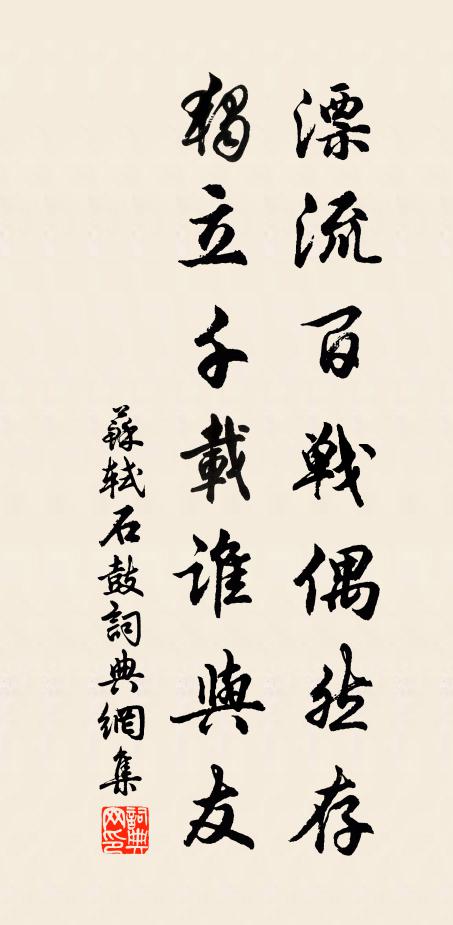 漂流百戰偶然存
獨立千載誰與友
蘇軾石鼓詞典網集
詞典網印